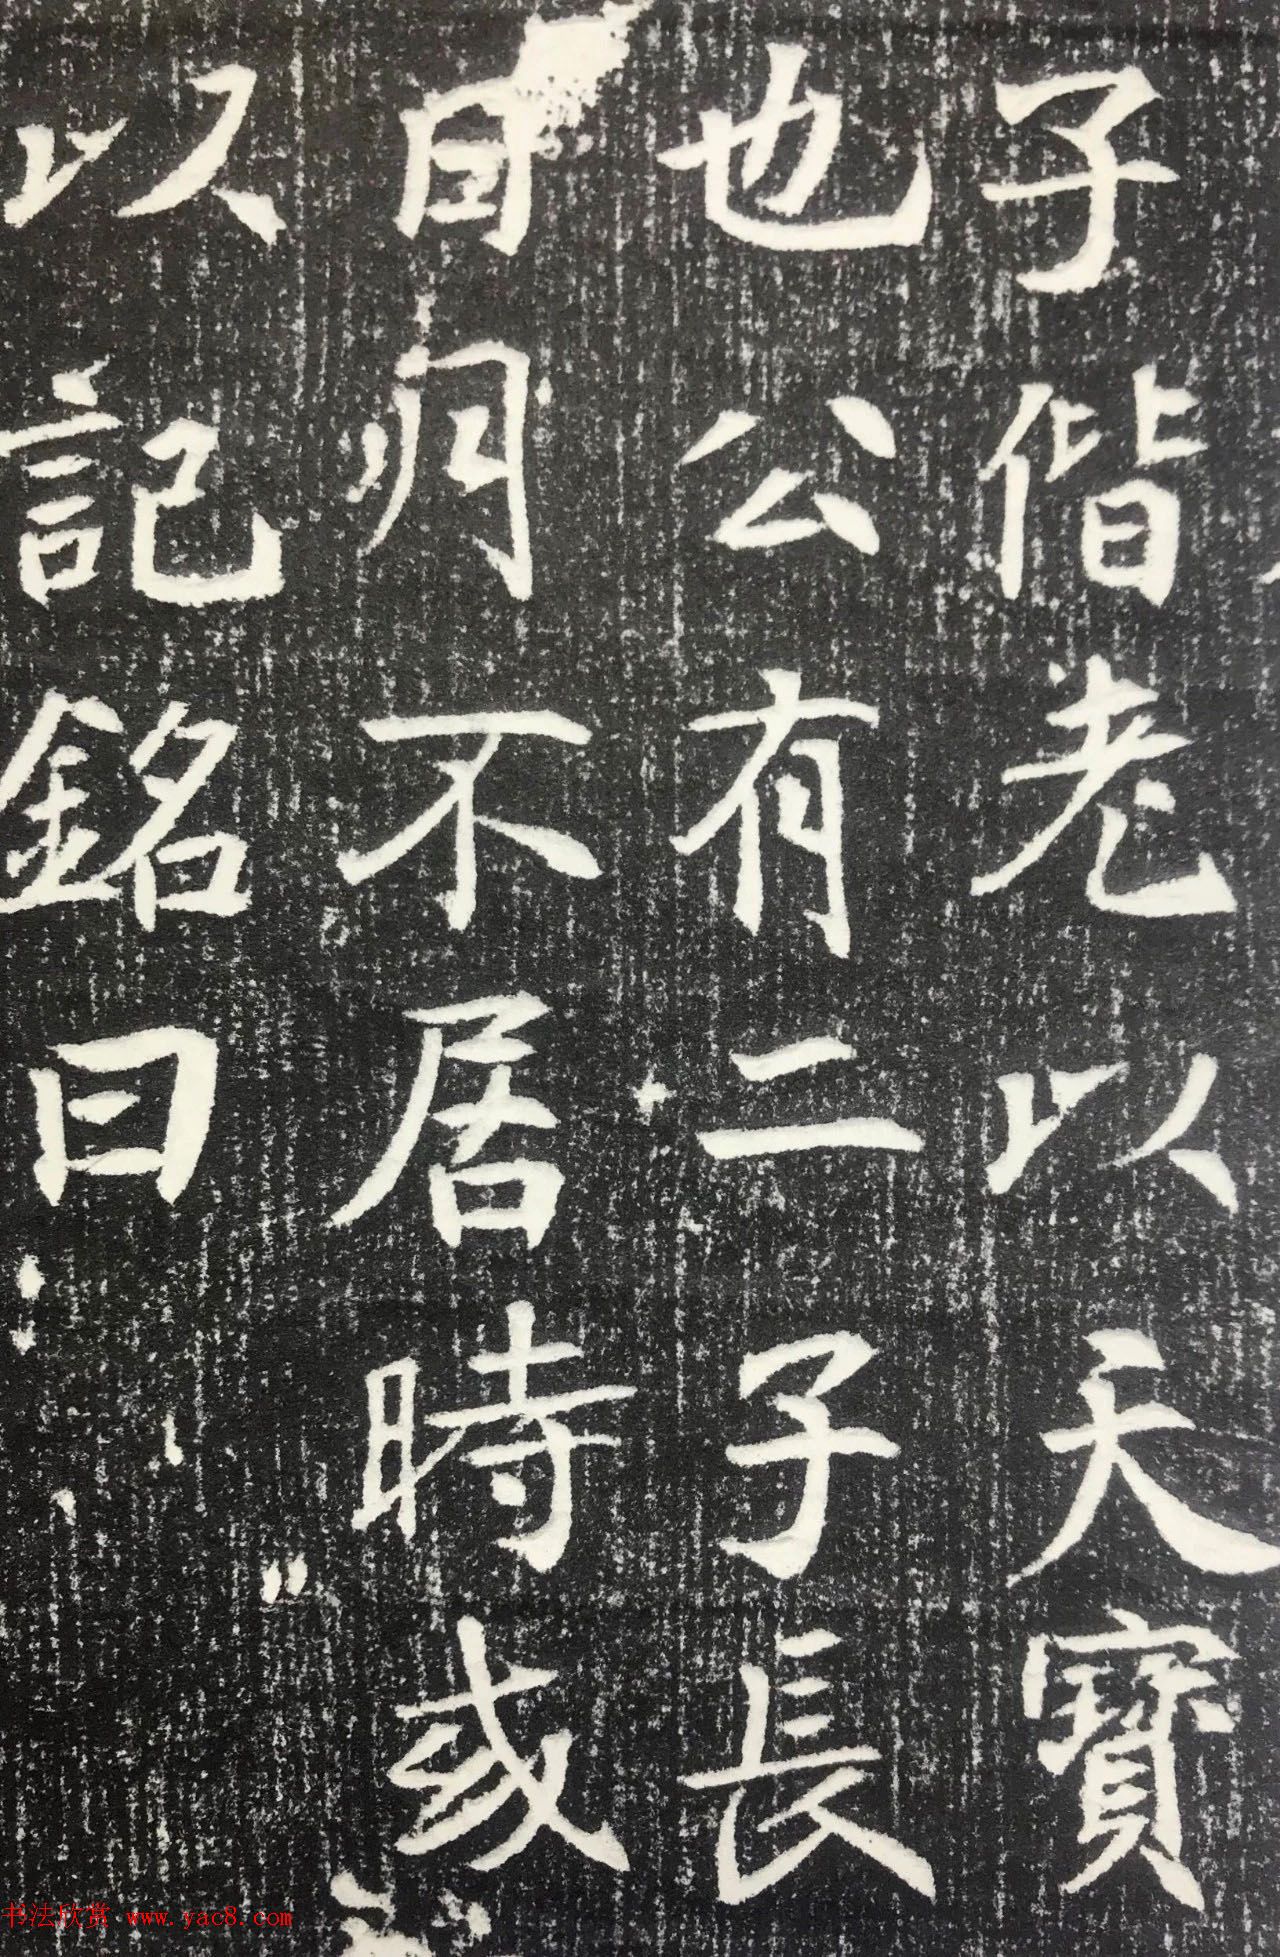 子偕老以天寶
也公有二子長
日月不居時或
以記銘曰
书法欣赏 www.yac8.com